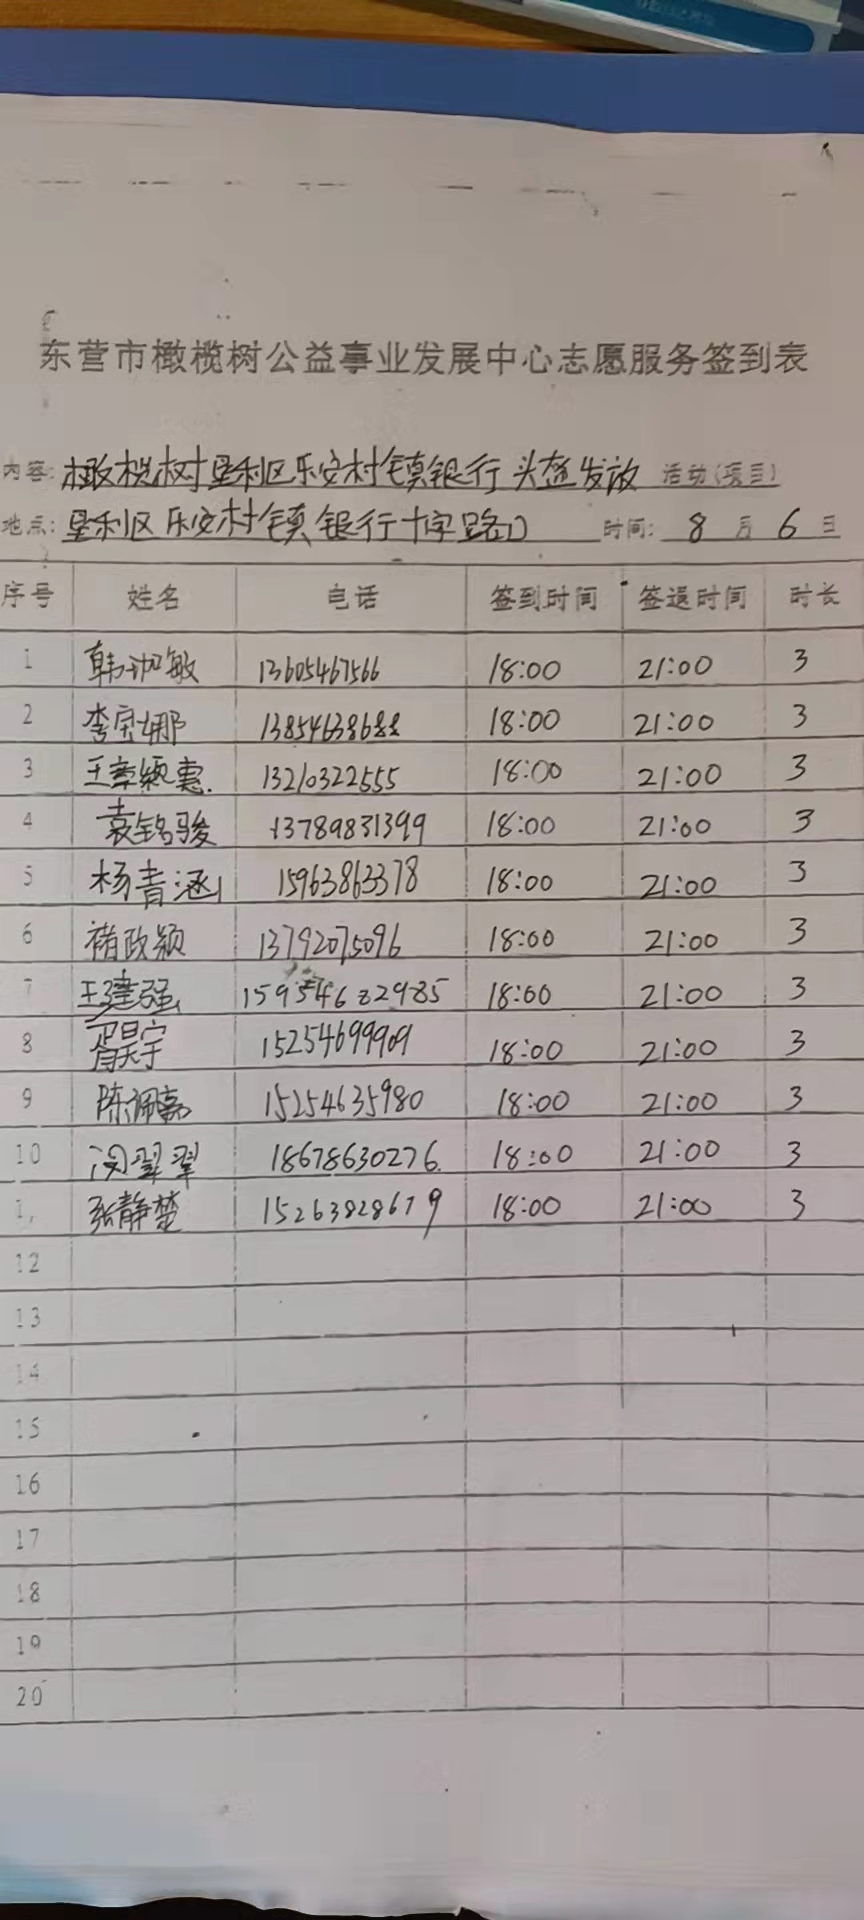 东营市橄榄树公益事业发展中心志愿服务签到表
内容: 橄榄树垦利区乐安村镇银行头盔发放 活动(项目)
地点: 垦利区乐安村镇银行十字路口 时间: 8 月 6 日
序号 姓名 电话 签到时间 签退时间 时长
1 韩泇敏 13605467566 18:00 21:00 3
2 李宗娜 13854638688 18:00 21:00 3
3 王章颖惠 13210322555 18:00 21:00 3
4 袁铭骏 13789831399 18:00 21:00 3
5 杨青涵 15963863378 18:00 21:00 3
6 褚政颖 13792075096 18:00 21:00 3
7 王建强 15954682985 18:00 21:00 3
8 15254699909 18:00 21:00 3
9 陈佩嘉 15254635980 18:00 21:00 3
10 闵翠翠 18678630276 18:00 21:00 3
1, 张静楚 15263828679 18:00 21:00 3
12
13
14
15
16
17
18
19
20